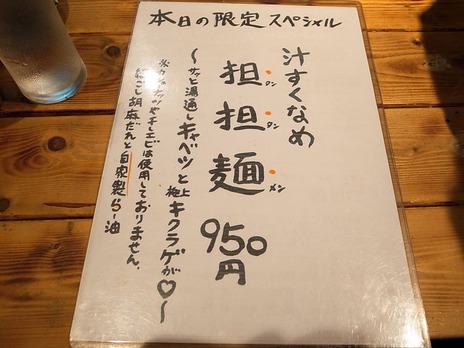 本日の限定スペシャル
汁すくなめ
担担麺 950円
タンタンメン
〜サッと湯通しキャベツと極上キクラゲが♡〜
※カシューナッツや干しエビは使用しておりません。
練こし胡麻だれと自家製らー油